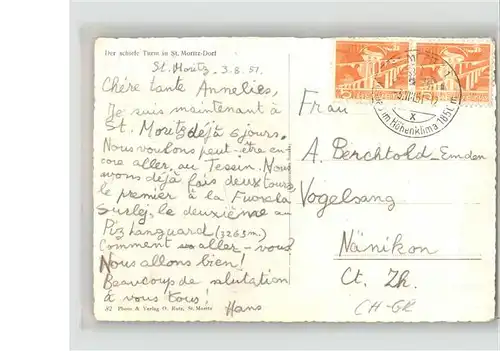 Der schiefe Turm in St. Moritz-Dorf
St. Moritz, 3.8.51.
Chère tante Annelies,
Je suis maintenant à
St. Moritz déjà 6 jours.
Nous voulons peut-être en-
core aller au Tessin. Nous
avons déjà fais deux tours
le premier à la Fuorcla
Surlej, le deuxième au
Piz Languard (3263m.)
Comment aller-vous?
Nous allons bien!
Beaucoup de salutation
à vous tous!
Hans
82 Photo & Verlag O. Rutz, St. Moritz
im Höhenklima 1850 m.
X
Frau
A. Berchtold-Emden
Vogelsang
Nänikon
Ct. Zh.
CH-GR